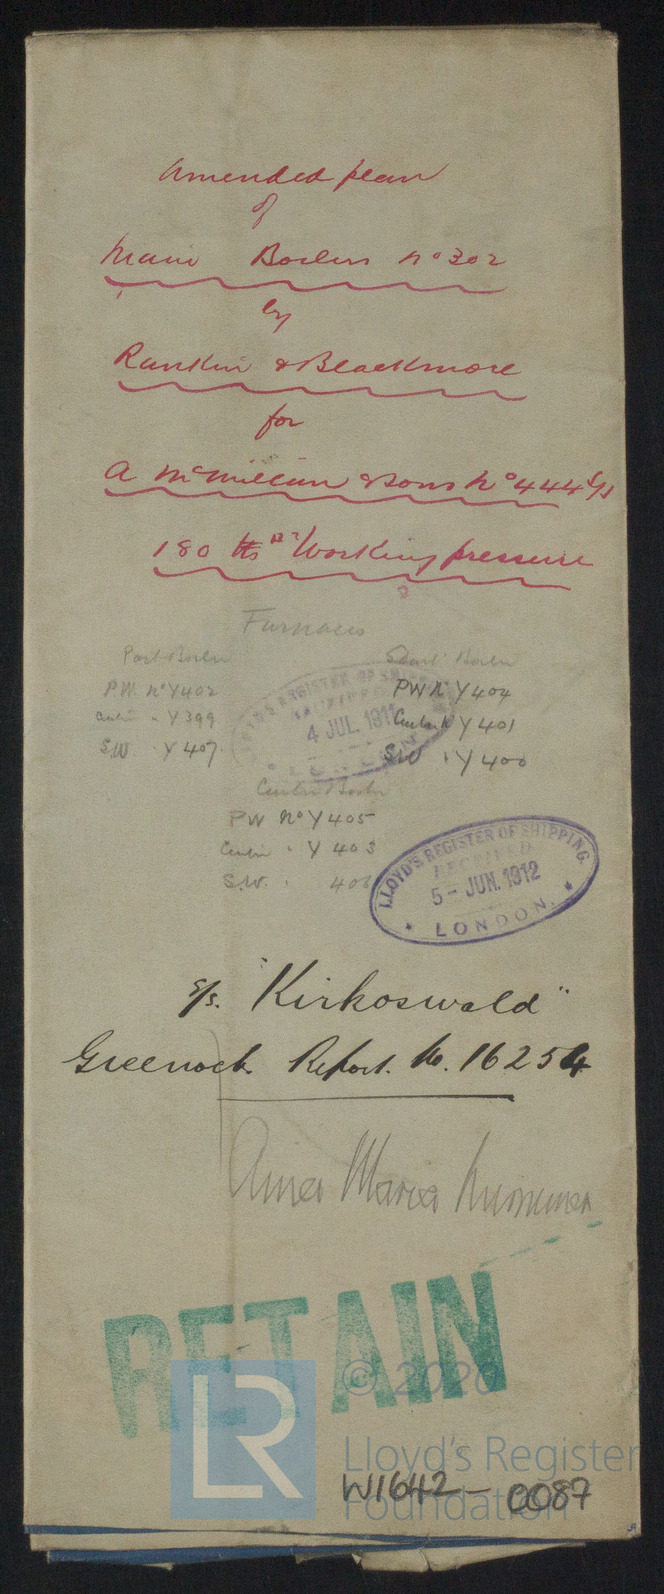 Amended plan
of
Main Boilers No 302
by
Rankin & Blackmore
for
A McMillan & Sons No 444 S/S
180 lbs Working pressure
Furnaces
Port Boiler
Start Boiler
P.W. No Y402
PW No Y404
Centre " Y399
Centre Y401
S.W. " Y407
SW " Y400
LLOYD'S REGISTER OF SHIPPING
4 JUL. 1911
LONDON
Centre Boiler
PW No Y405
Centre " Y403
S.W. "
LLOYD'S REGISTER OF SHIPPING.
RECEIVED
5 - JUN. 1912
LONDON.
S/S. "Kirkoswald"
Greenock Report. No. 16254
Maria
RETAIN
LR
© 2020
Lloyd's Register
Foundation
W1642 - 0087